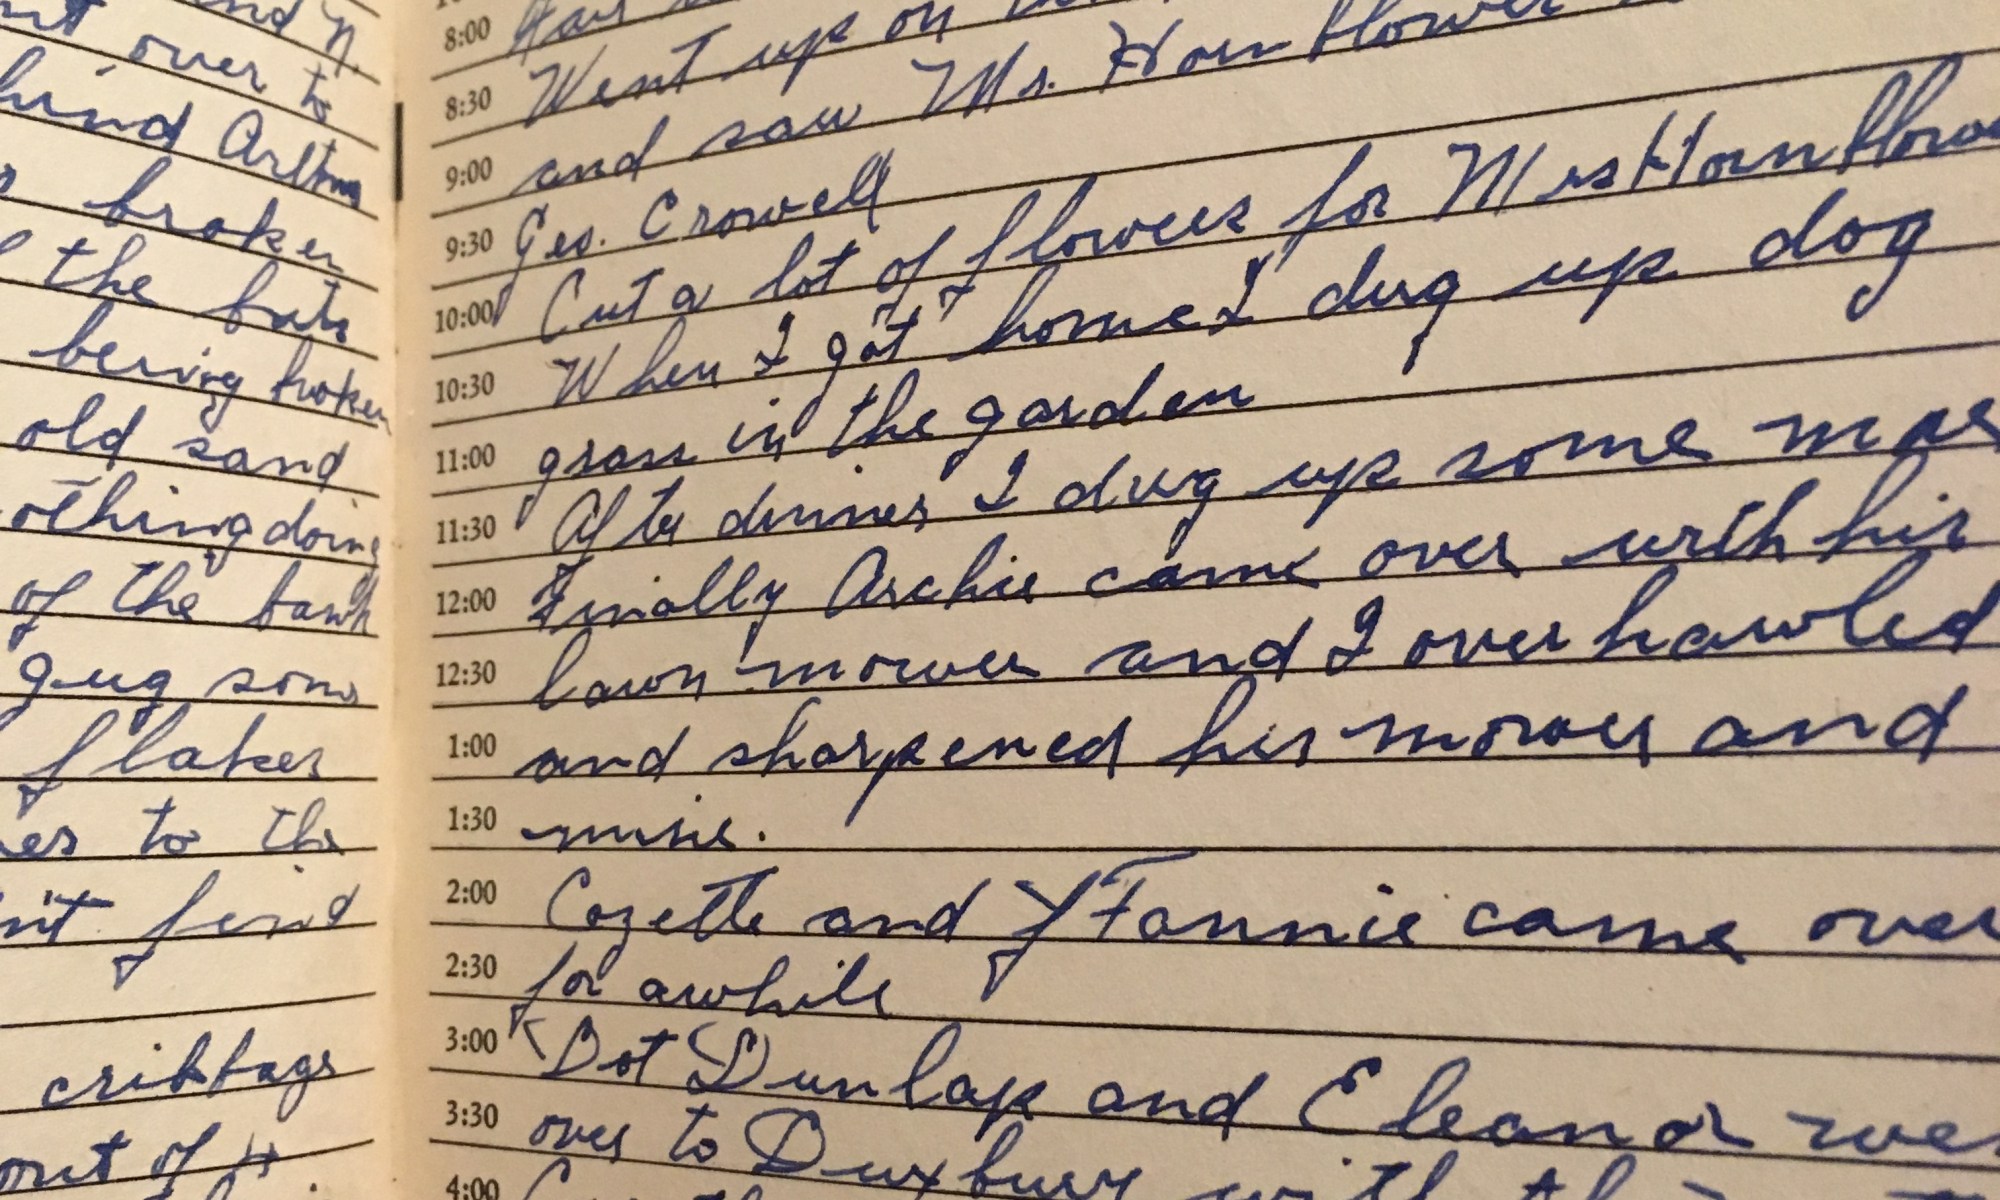 over to
broken
the
being broken
old sand
othing doing
of the bank
gug some
flakes
to the
n't find
cribbage
out of
8:00
8:30 Went up on
9:00 and saw Mr. Hornflower
9:30 Geo. Crowell
10:00 Cut a lot of flowers for Mrs Hornflower
10:30 When I got home I dug up dog
11:00 grass in the garden
11:30 After dinner I dug up some more
12:00 Finally Archie came over with his
12:30 lawn mower and I over hawled
1:00 and sharpened his mower and
1:30 mine.
2:00 Cozette and Fannie came over
2:30 for awhile
3:00 Dot Dunlap and Eleanor
3:30 over to Duxbury with
4:00